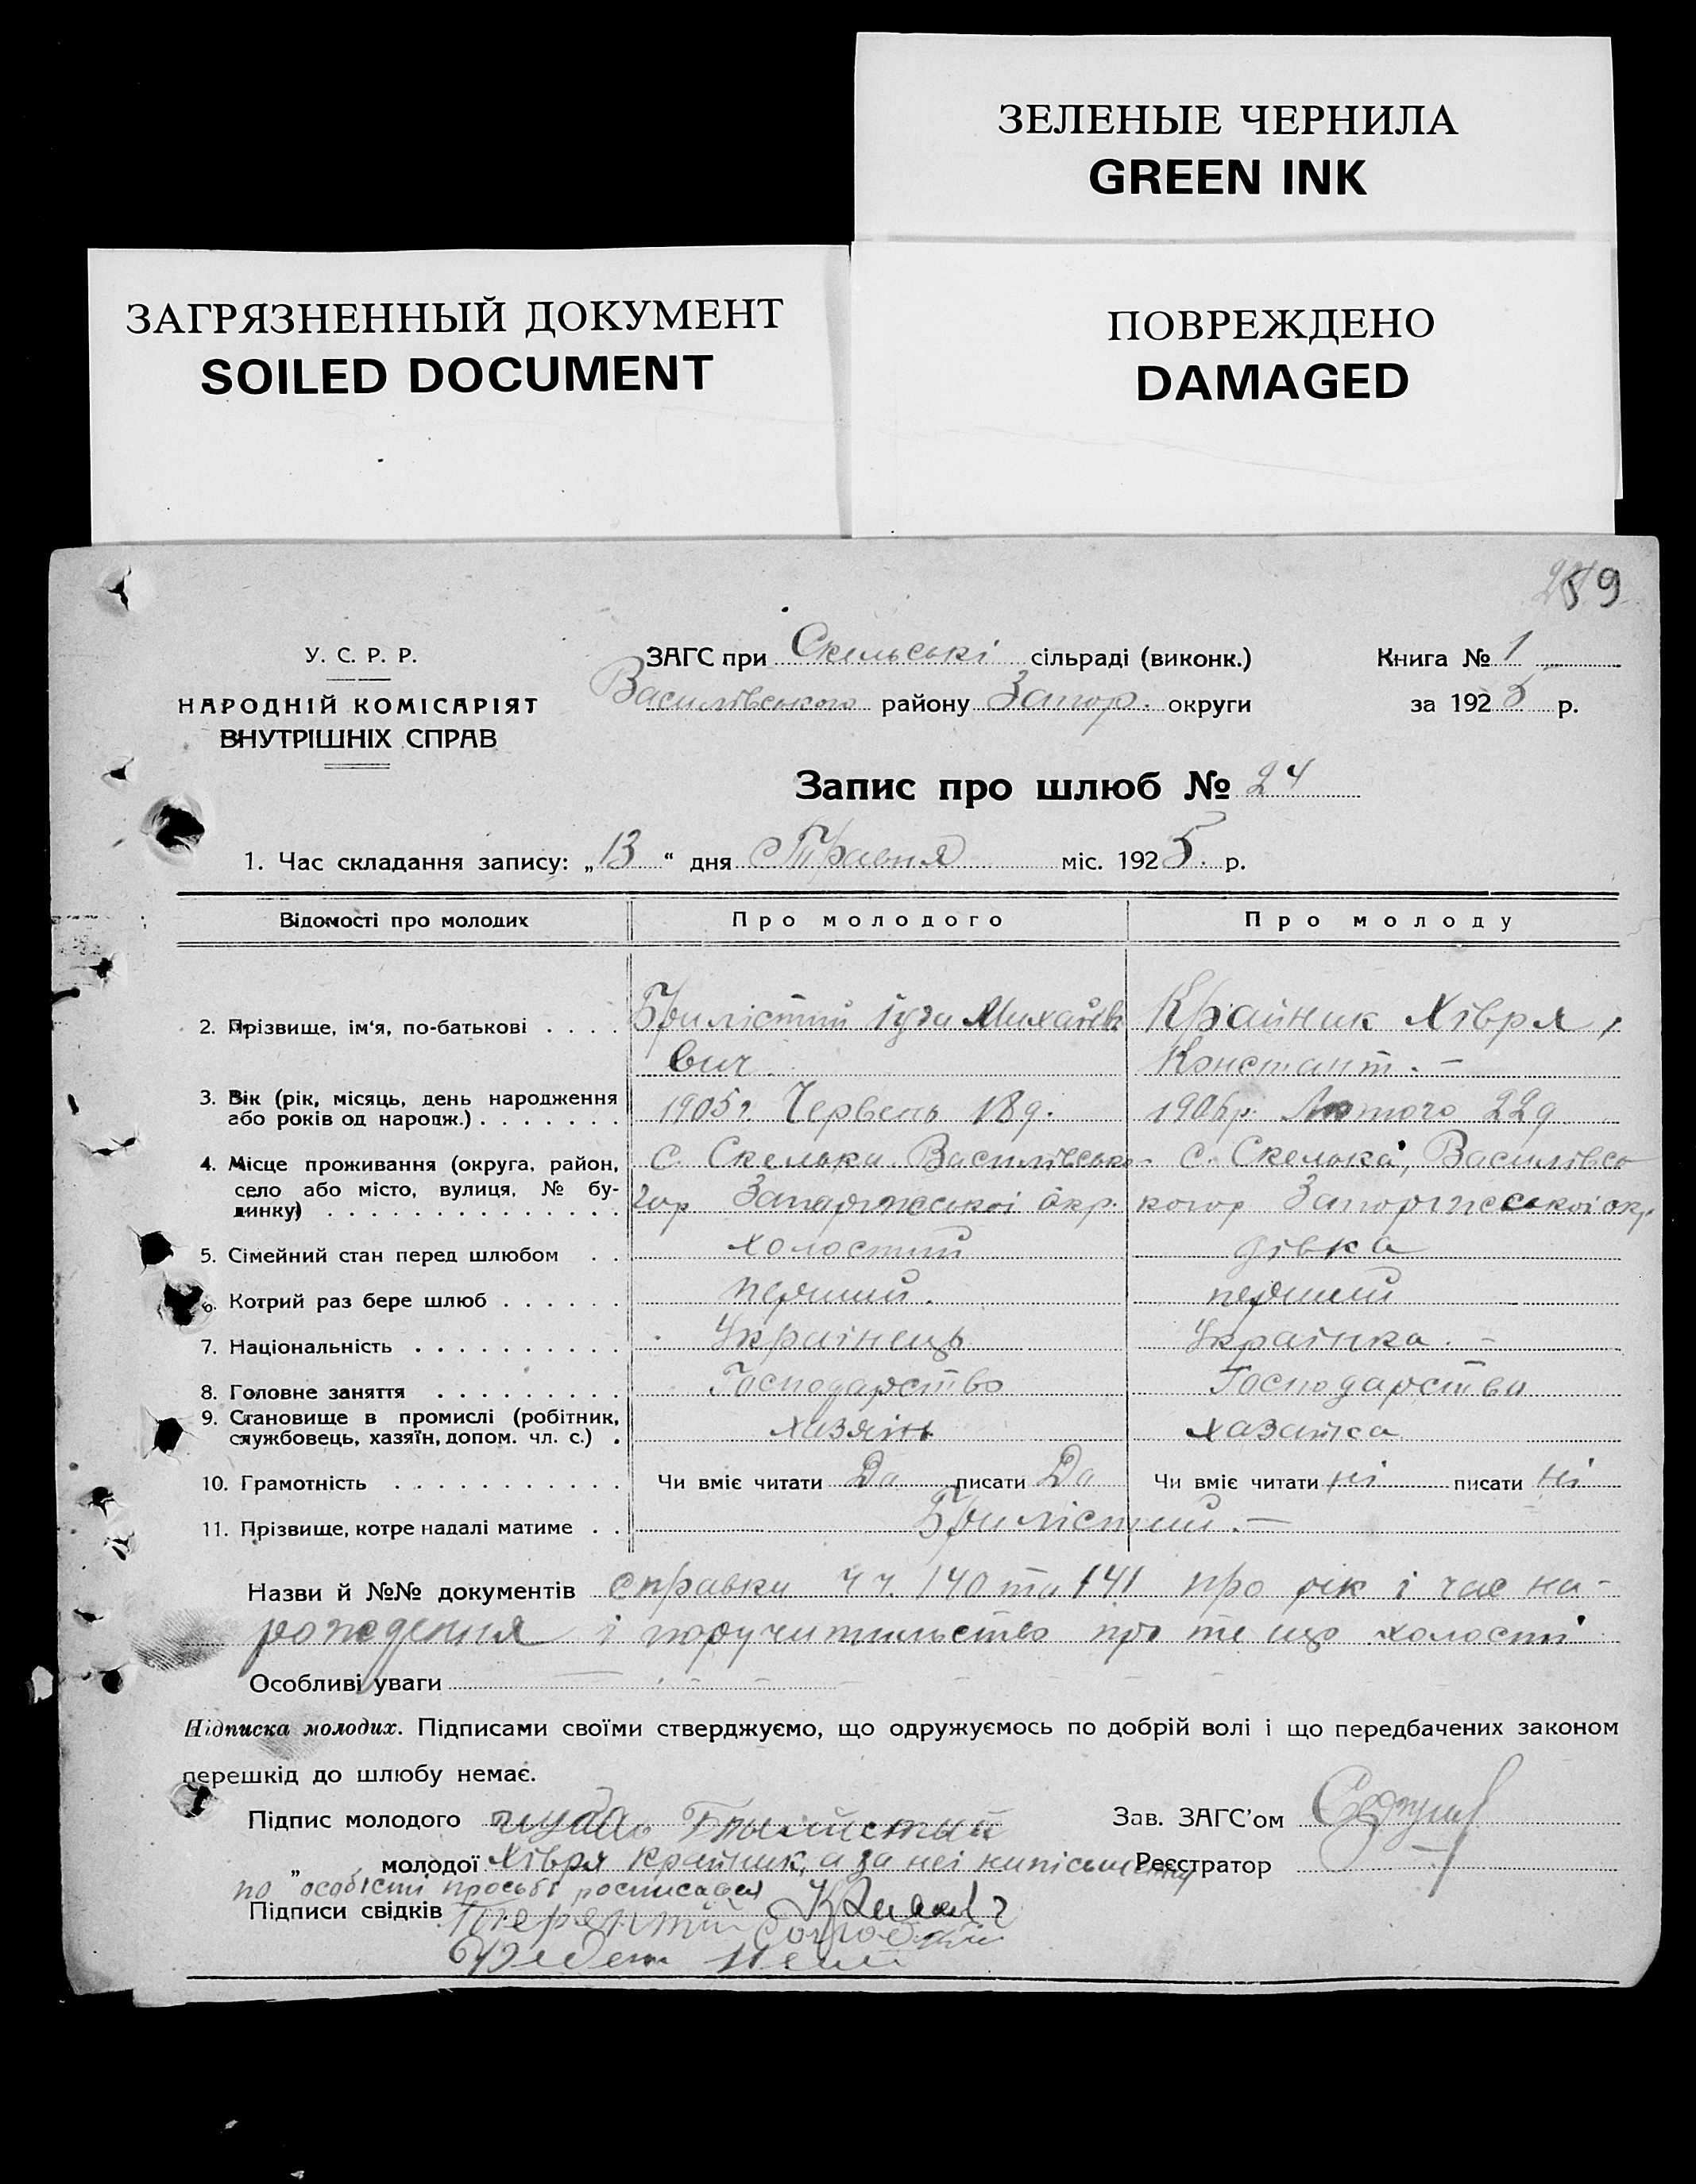 ЗЕЛЕНЫЕ ЧЕРНИЛА
GREEN INK
ЗАГРЯЗНЕННЫЙ ДОКУМЕНТ
SOILED DOCUMENT
ПОВРЕЖДЕНО
DAMAGED
У. С. Р. Р.
НАРОДНІЙ КОМІСАРІЯТ
ВНУТРІШНІХ СПРАВ
ЗАГС при Скельські сільраді (виконк.)
Василівського району Запор. округи
Книга № 1
за 1925 р.
Запис про шлюб № 24
1. Час складання запису: „13“ дня Травня міс. 1925. р.
Відомості про молодих Про молодого Про молоду
2. Прізвище, ім'я, по-батькові . . . . Брилістий Михайлович Крайник Хівря,
Констант. –
3. Вік (рік, місяць, день народження
або років од народж.) . . . . . . . 1905 г. Червень 18 д. Лютого 22 д
4. Місце проживання (округа, район,
село або місто, вулиця, № будинку) . . . . . . . . . . . . . .
с. Скелька Василівсько- с. Скелька, Василівсь
гор Запоріжської окр. когор Запоріжської окр.
5. Сімейний стан перед шлюбом . . холостий дівка
6. Котрий раз бере шлюб . . . . . . перший. перший
7. Національність . . . . . . . . . . Украінець Украінка. –
8. Головне заняття . . . . . . . . . Господарство Господарство
9. Становище в промислі (робітник,
службовець, хазяїн, допом. чл. с.) . хазяін хазайка
10. Грамотність . . . . . . . . . . . Чи вміє читати Да писати Да Чи вміє читати ні писати ні
11. Прізвище, котре надалі матиме . . Брилістий. –
Назви й №№ документів справки ч ч. 140 та 141 про рік і час на-
рождения і поручительство про те що холості
Особливі уваги
Підписка молодих. Підписами своїми стверджуємо, що одружуємось по добрій волі і що передбачених законом
перешкід до шлюбу немає.
Підпис молодого
Зав. ЗАГС'ом
„ молодої Хівря Крайник, а за неі
Реєстратор
по особісті просьбі росписався
Підписи свідків